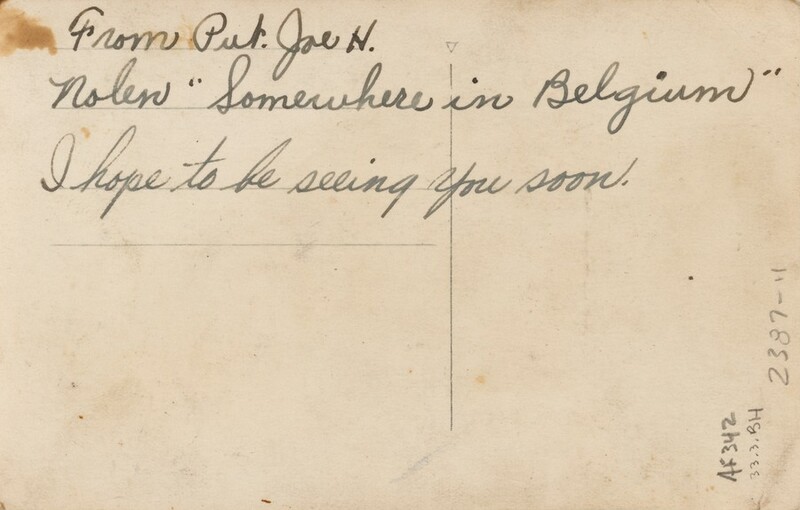 From Pvt. Joe H.
Nolen "Somewhere in Belgium"
I hope to be seeing you soon.
2387-11
AF342
33.3.BH